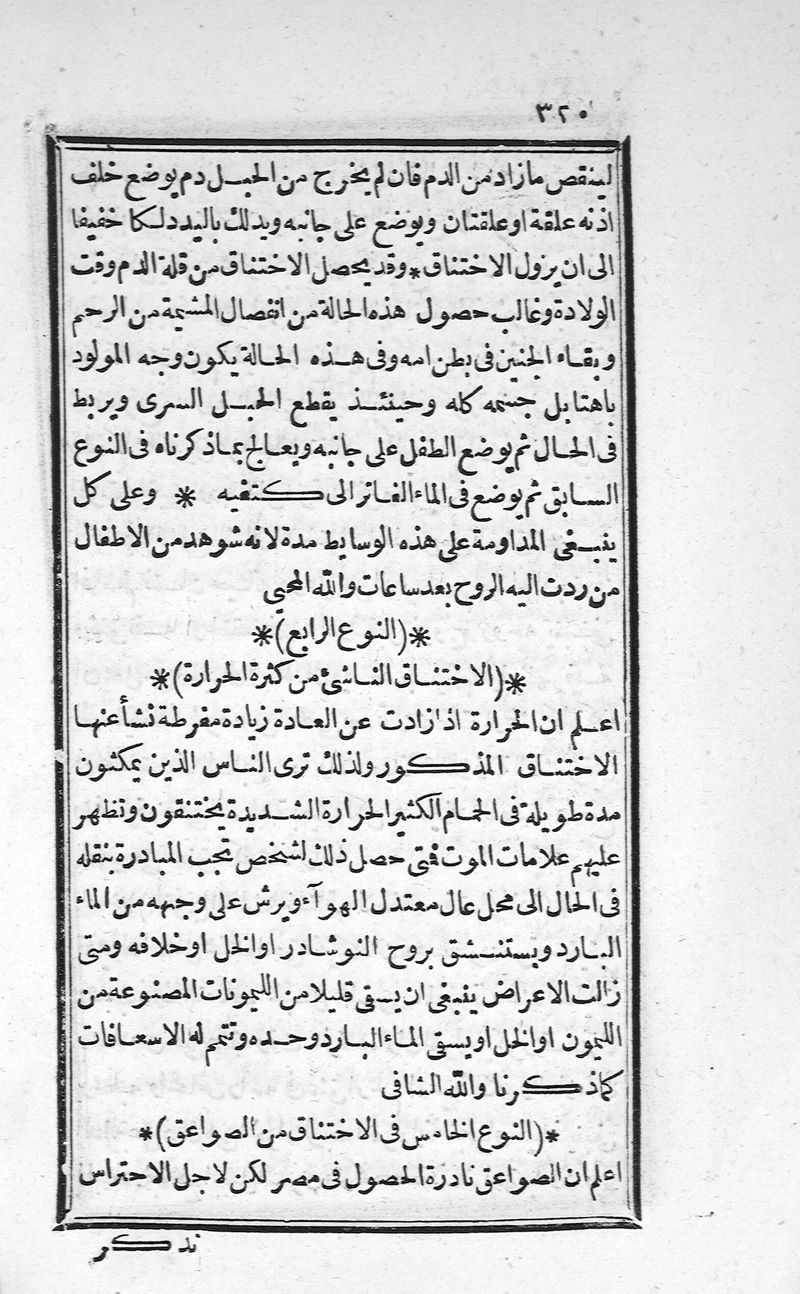 ٣٢٥
لينقص مازاد من الدم فان لم يخرج من الحبل دم يوضع خلف
اذنه علقة او علقتان ويوضع على جانبه ويدلك باليد دلكا خفيفا
الى ان يزول الاختناق * وقد يحصل الاختناق من قلة الدم وقت
الولادة وغالب حصول هذه الحالة من انفصال المشيمة من الرحم
وبقاء الجنين فى بطن امه وفى هذه الحالة يكون وجه المولود
باهتا بل جسمه كله وحينئذ يقطع الحبل السرى ويربط
فى الحال ثم يوضع الطفل على جانبه ويعالج بماذكرناه فى النوع
السابق ثم يوضع فى الماء الفاتر الى كتفيه * وعلى كل
ينبغى المداومة على هذه الوسايط مدة لانه شوهد من الاطفال
من ردت اليه الروح بعد ساعات والله المحيى
*(النوع الرابع)*
*(الاختناق الناشئ من كثرة الحرارة)*
اعلم ان الحرارة اذ ازادت عن العادة زيادة مفرطة نشأ عنها
الاختناق المذكور ولذلك ترى الناس الذين يمكثون
مدة طويلة فى الحمام الكثير الحرارة الشديدة يختنقون وتظهر
عليهم علامات الموت فمتى حصل ذلك لشخص تجب المبادرة بنقله
فى الحال الى محل عال معتدل الهوآء ويرش على وجهه من الماء
البارد ويستنشق بروح النوشادر او الخل او خلافه ومتى
زالت الاعراض ينبغى ان يسقى قليلا من الليمونات المصنوعة من
الليمون او الخل او يسقى الماء البارد وحده وتتمم له الاسعافات
كماذكرنا والله الشافى
*(النوع الخامس فى الاختناق من الصواعق)*
اعلم ان الصواعق نادرة الحصول فى مصر لكن لاجل الاحتراس
نذكر